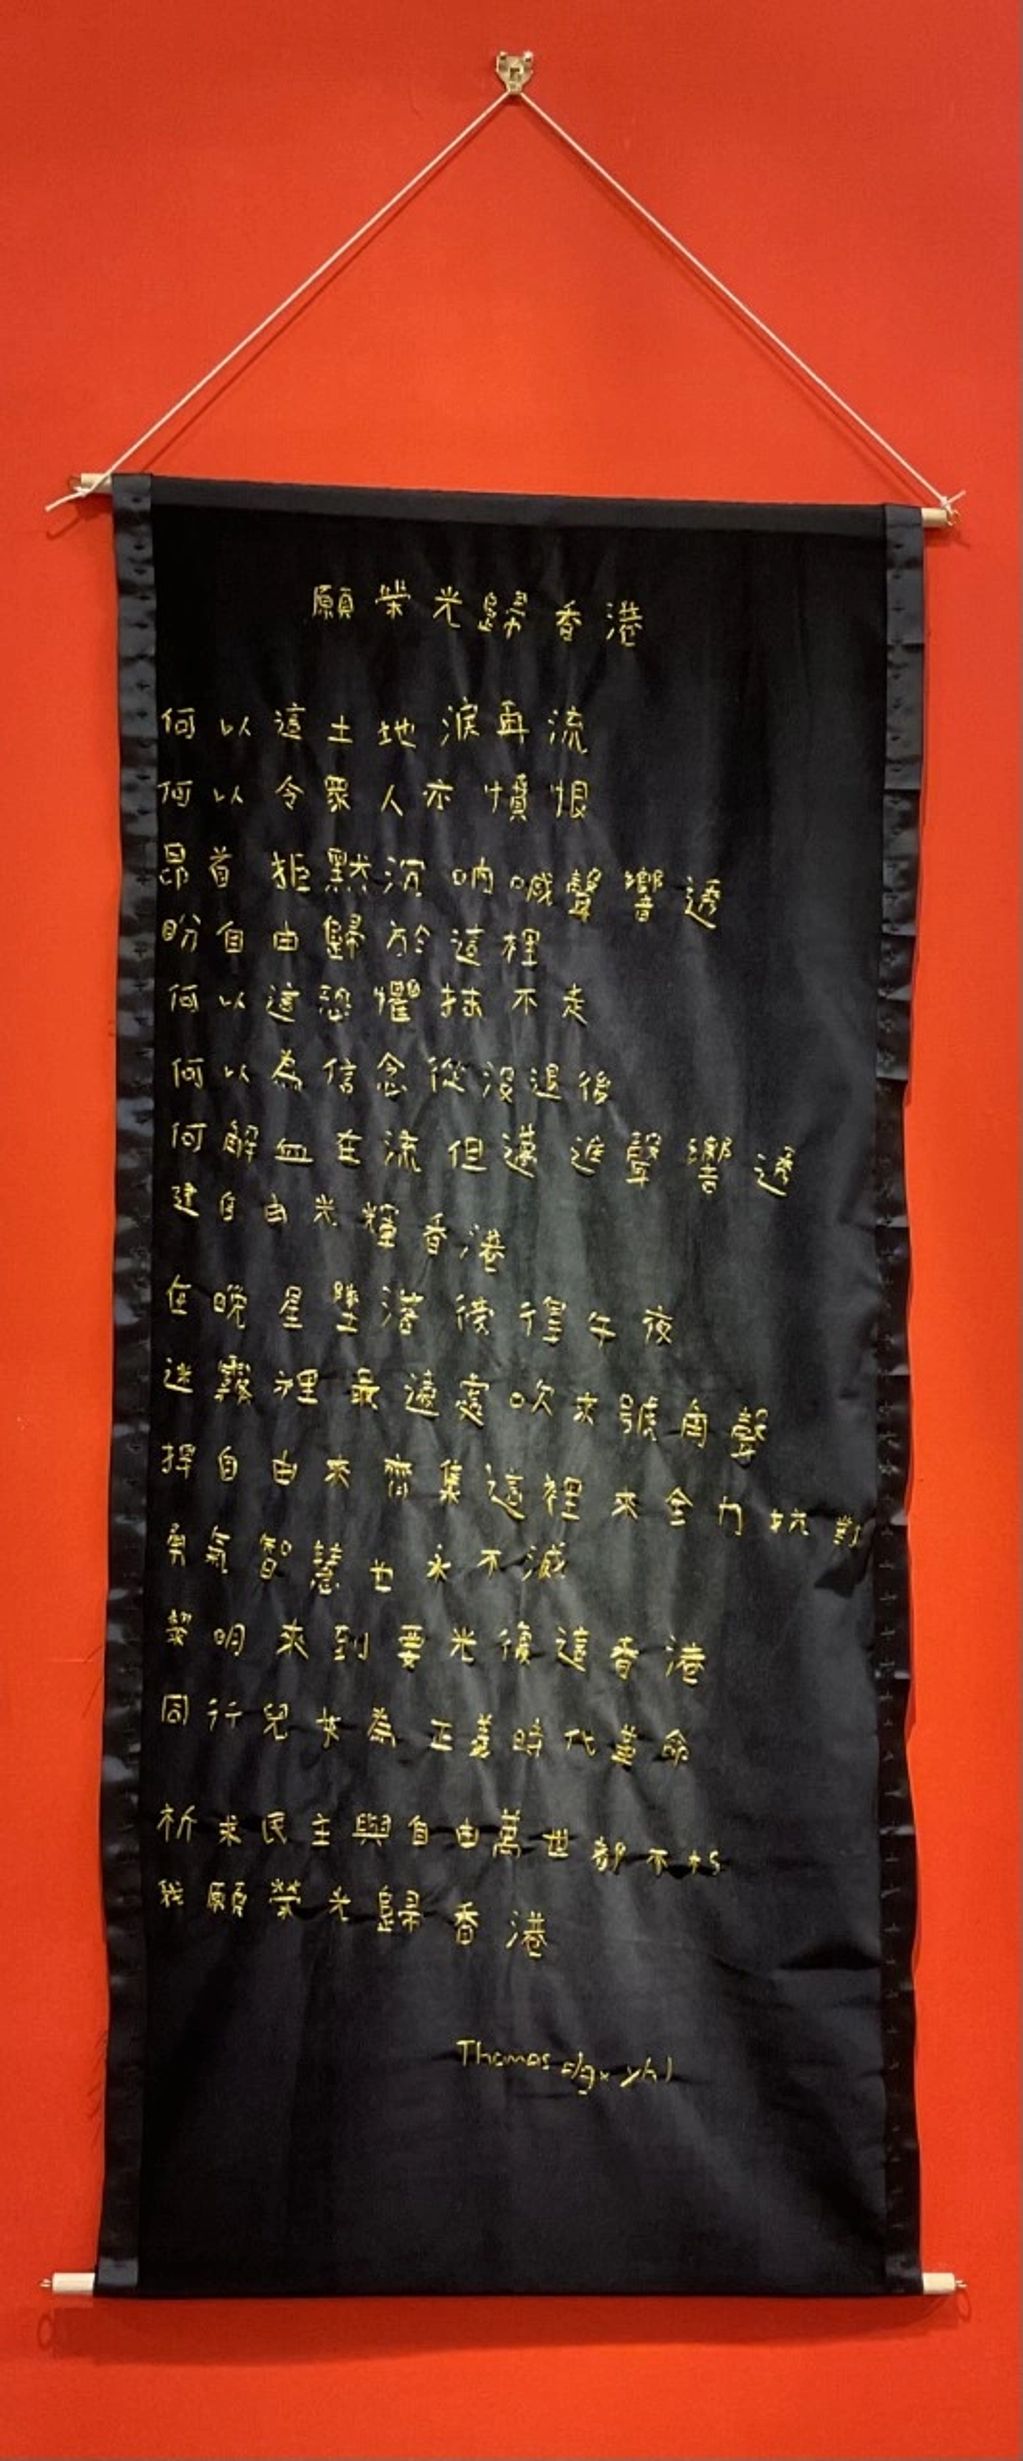 願榮光歸香港
何以這土地淚再流
何以令眾人亦憤恨
昂首拒默沉吶喊聲響透
盼自由歸於這裡
何以這恐懼抹不走
何以為信念從沒退後
何解血在流但邁進聲響透
建自由光輝香港
在晚星墜落徬徨午夜
迷霧裡最遠處吹來號角聲
捍自由來齊集這裡來全力抗對
勇氣智慧也永不滅
黎明來到要光復這香港
同行兒女為正義時代革命
祈求民主與自由萬世都不朽
我願榮光歸香港
Thomas